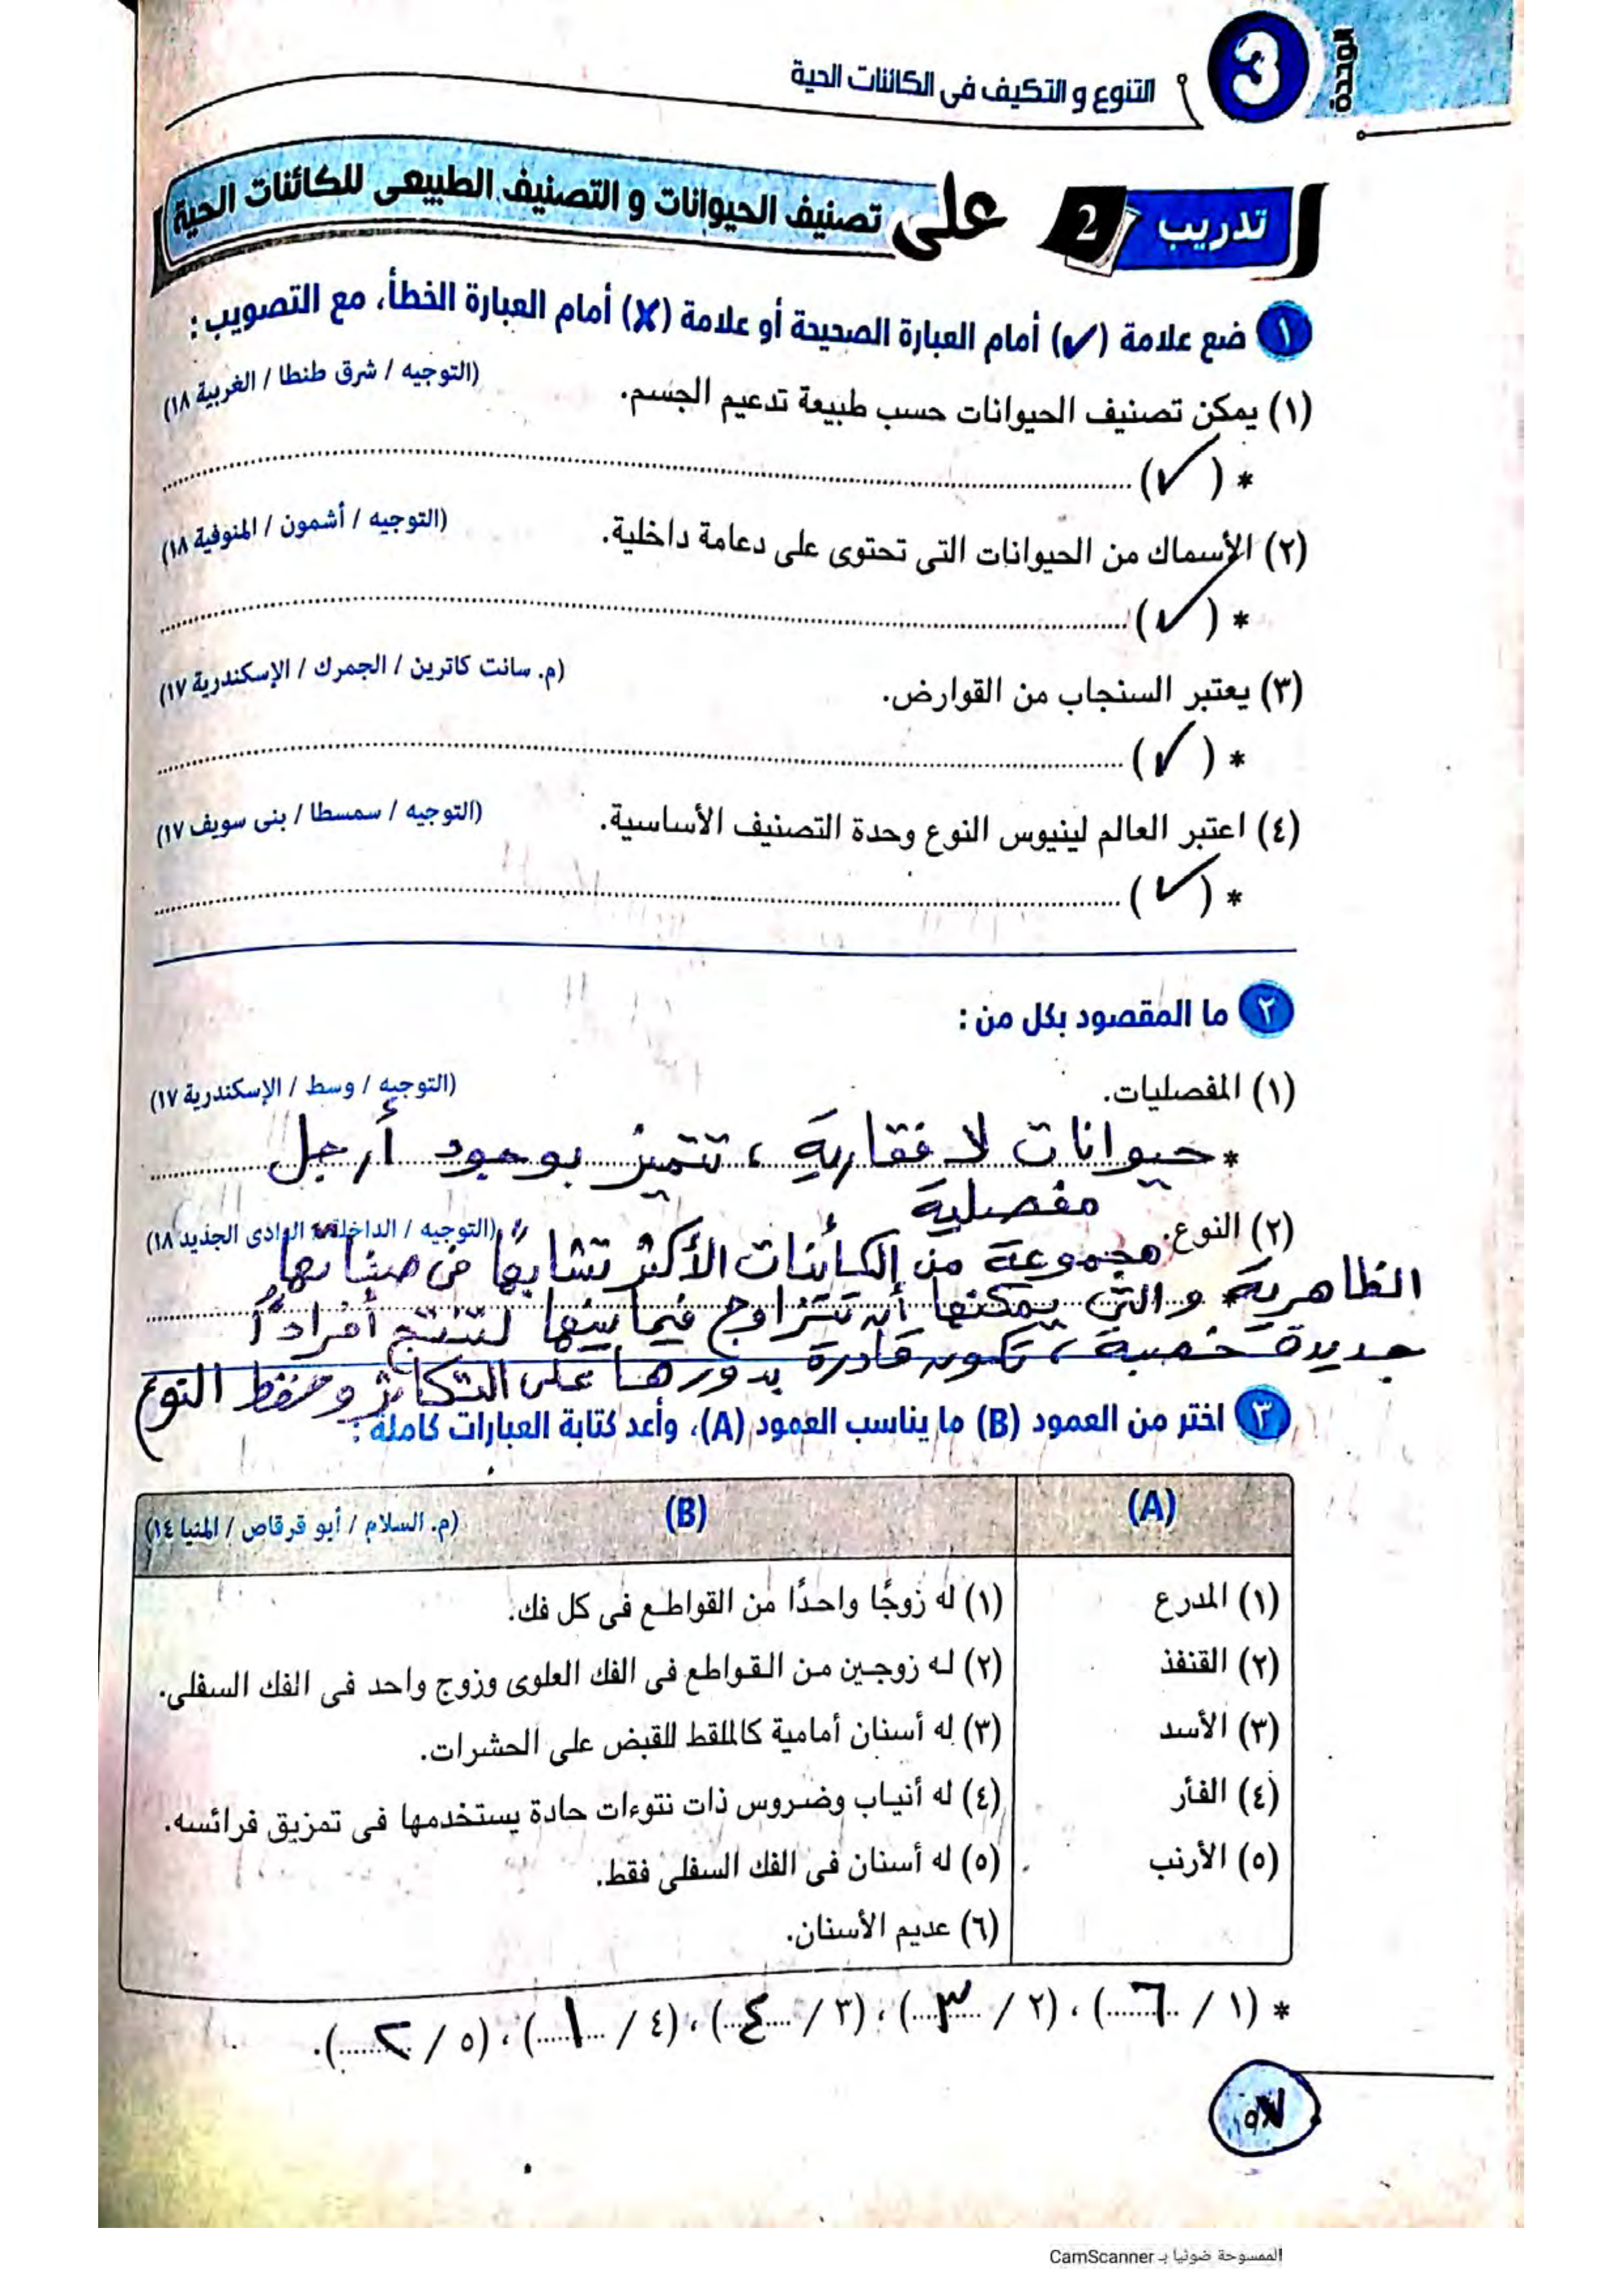 الوحدة
3
التنوع و التكيف فى الكائنات الحية
تدريب 2 على تصنيف الحيوانات و التصنيف الطبيعى للكائنات الحية
١ ضع علامة (✓) أمام العبارة الصحيحة أو علامة (✗) أمام العبارة الخطأ، مع التصويب :
(١) يمكن تصنيف الحيوانات حسب طبيعة تدعيم الجسم. (التوجيه / شرق طنطا / الغربية ١٨)
* (✓)
(٢) الأسماك من الحيوانات التى تحتوى على دعامة داخلية. (التوجيه / أشمون / المنوفية ١٨)
* (✓)
(٣) يعتبر السنجاب من القوارض. (م. سانت كاترين / الجمرك / الإسكندرية ١٧)
* (✓)
(٤) اعتبر العالم لينيوس النوع وحدة التصنيف الأساسية. (التوجيه / سمسطا / بنى سويف ١٧)
* (✓)
٢ ما المقصود بكل من :
(١) المفصليات. (التوجيه / وسط / الإسكندرية ١٧)
* حيوانات لا فقارية ، تتميز بوجود أرجل
مفصلية
(٢) النوع. (التوجيه / الداخلة / الوادى الجديد ١٨)
مجموعة من الكائنات الأكثر تشابهًا فى صفاتها
الظاهرية والتى يمكنها أن تتزاوج فيما بينها لتنتج أفرادًا
جديدة خصبة ، تكون قادرة بدورها على التكاثر وحفظ النوع
٣ اختر من العمود (B) ما يناسب العمود (A)، وأعد كتابة العبارات كاملة :
(A) (B) (م. السلام / أبو قرقاص / المنيا ١٤)
(١) المدرع (١) له زوجًا واحدًا من القواطع فى كل فك.
(٢) القنفذ (٢) له زوجين من القواطع فى الفك العلوى وزوج واحد فى الفك السفلى.
(٣) الأسد (٣) له أسنان أمامية كالملقط للقبض على الحشرات.
(٤) الفأر (٤) له أنياب وضروس ذات نتوءات حادة يستخدمها فى تمزيق فرائسه.
(٥) الأرنب (٥) له أسنان فى الفك السفلى فقط.
(٦) عديم الأسنان.
* (١ / ٦) ، (٢ / ٣) ، (٣ / ٤) ، (٤ / ١) ، (٥ / ٢).
الممسوحة ضوئيا بـ CamScanner